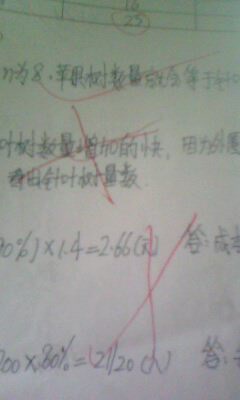 16
(25)
n为8.苹果树数量就会等于针
叶树数量增加的快,因为外围
针叶树量数.
0%)×1.4=2.66(元) 答:成
00×80%=(21/20(人) 答: